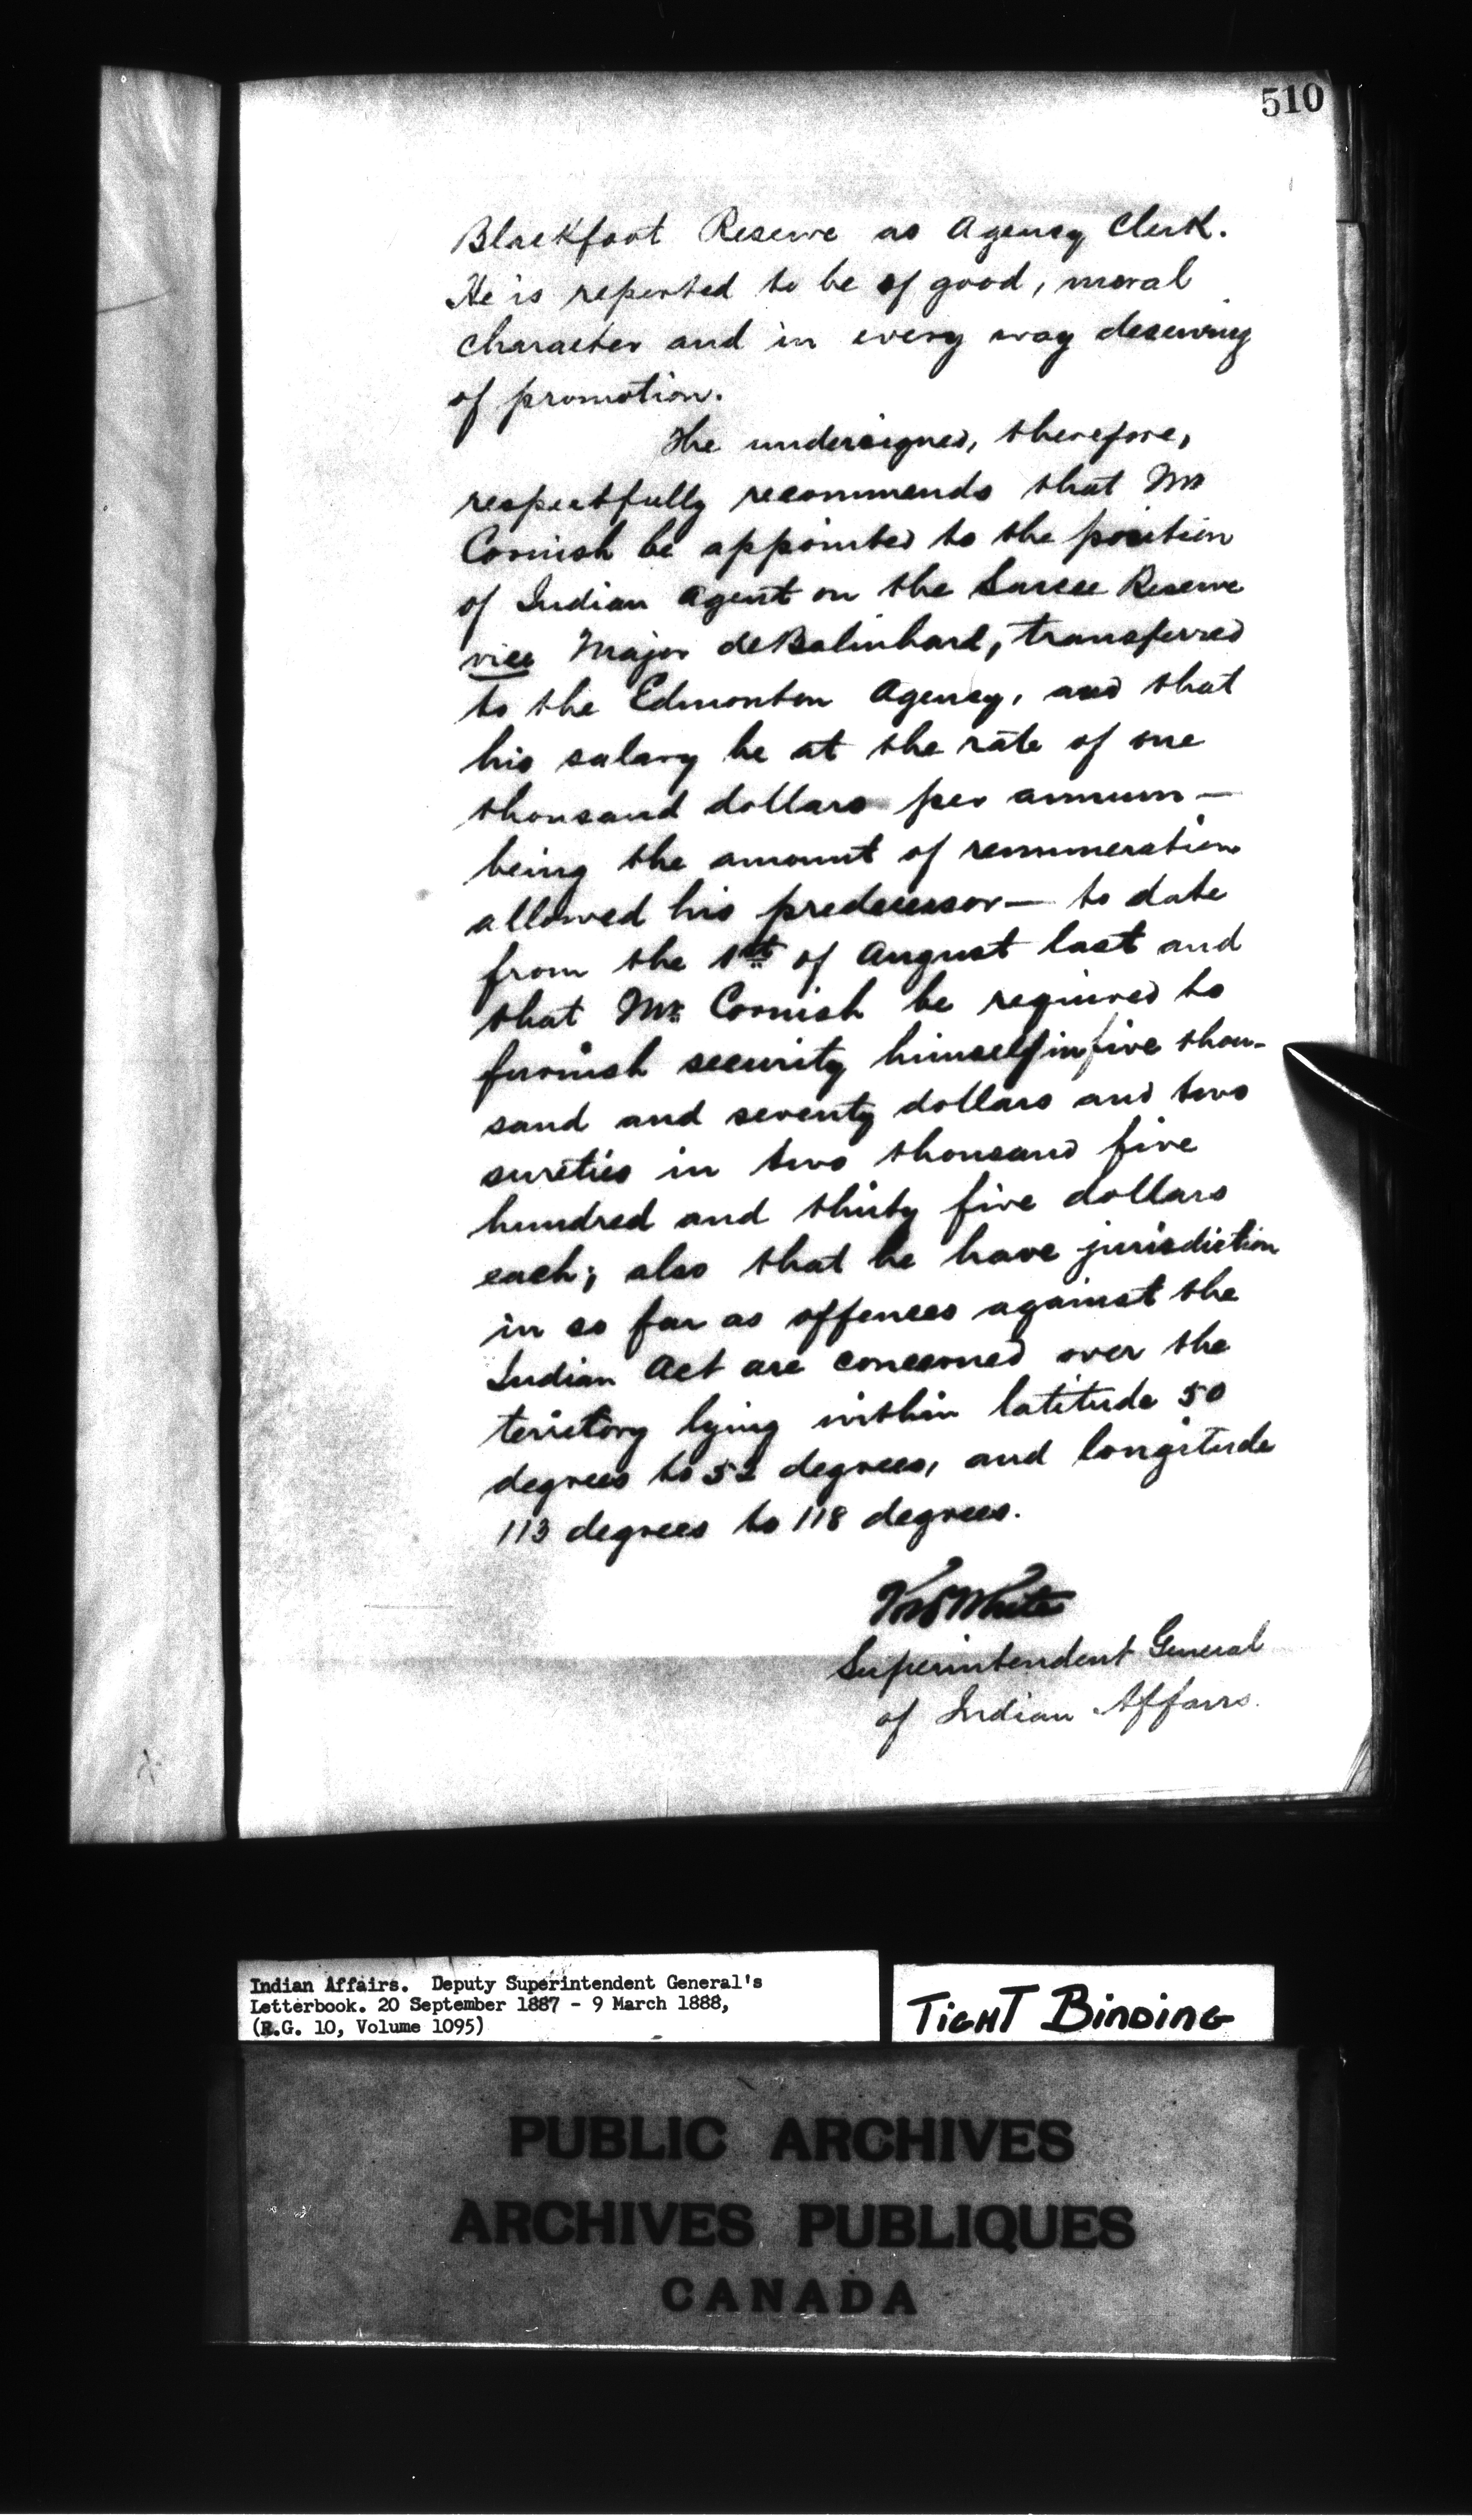 510
Blackfoot Reserve as Agency Clerk.
He is reported to be of good, moral
character and in every way deserving
of promotion.
The undersigned, therefore,
respectfully recommends that Mr
Cornish be appointed to the position
of Indian Agent on the Sarcee Reserve
vice Major deBalinhard, transferred
to the Edmonton Agency, and that
his salary be at the rate of one
thousand dollars per annum—
being the amount of remuneration
allowed his predecessor— to date
from the 1st of August last and
that Mr. Cornish be required to
furnish security himself in five thou-
sand and seventy dollars and two
sureties in two thousand five
hundred and thirty five dollars
each; also that he have jurisdiction
in so far as offences against the
Indian Act are concerned over the
territory lying within latitude 50
degrees to 52 degrees, and longitude
113 degrees to 118 degrees.
Thos White
Superintendent General
of Indian Affairs.
Indian Affairs. Deputy Superintendent General's
Letterbook. 20 September 1887 - 9 March 1888,
(R.G. 10, Volume 1095)
TIGHT BINDING
PUBLIC ARCHIVES
ARCHIVES PUBLIQUES
CANADA